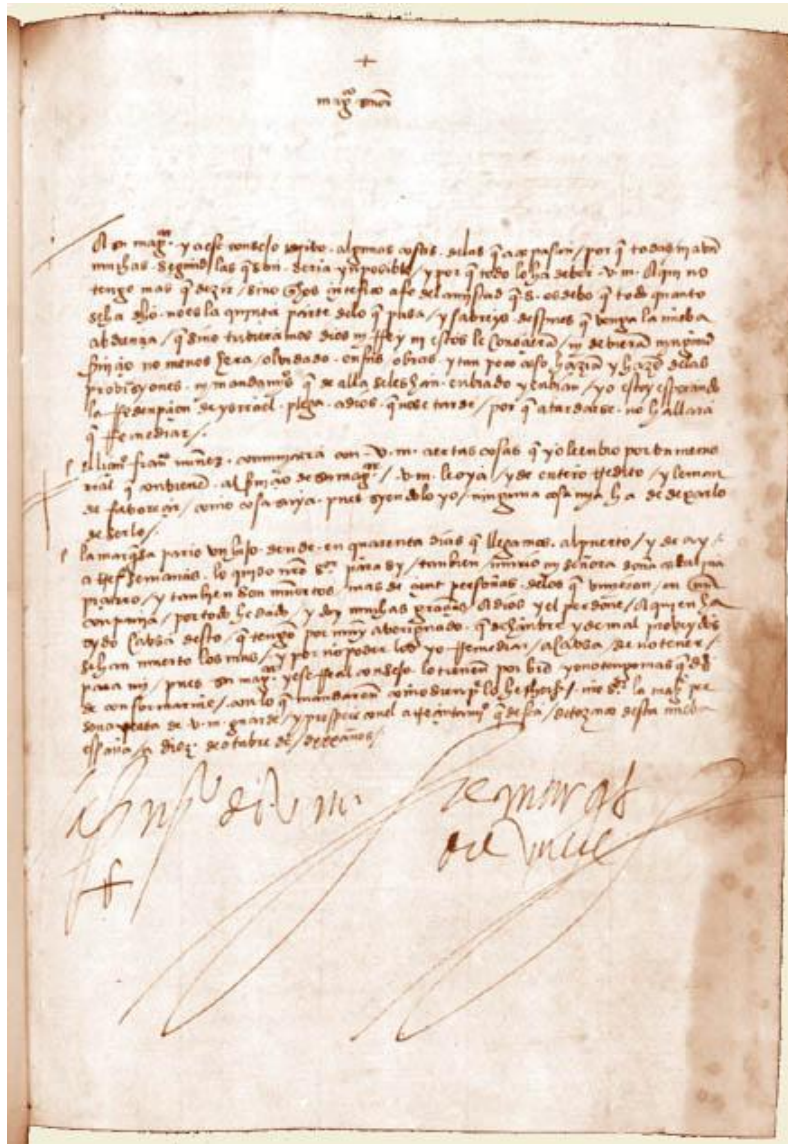 +
mag^co señor
A su mag^t. y a ese consejo escribo. algunas cosas. de las q aca pasan / por q todas
muchas. segund las q son. seria ynposible / y por q todo lo ha de ber. v.m. Aqui no
tengo mas q dezir / sino q del amistad q s. os debo q todo quanto
se ha dho. no es la quinta parte delo q pasa / y sabreys despues q venga la nueba
abdenzia / q si no tubieramos dios ni ffe ni estos le
no menos hera / olvidado. en sus obras. y tan poco caso hazian y hazen delas
probisyones. ni mandamy^os q de alla se les han. enbiado y enbian / yo estoy esperando
la rredempcion de ysrrael. plega. a dios. q no se tarde / por q a tardarse. no hallara
q rremediar /.
el liçen^do fran^co nuñez. comunicara con. v.m. çiertas cosas q yo le enbio por un memo
rial q conbienen. al serui^o de su mag^t / v.m. le oya / y de entero credito / y le man
de faboreçer / como cosa suya. pues syendolo yo / ninguna cosa mya ha de dexarlo
de serlo /.
la marqsa pario un hijo. dende. en quarenta dias q llegamos. al puerto / y de ay
a tres semanas. lo quiso nro s^r. para sy / tanbien / murio mi señora doña catalina
piçarro / y tanbien son muertos / mas de çient personas. delos q vinieron / en
conpañia / por todo he dado / y doy muchas graçias. A dios y el perdone / A quien ha
sydo causa desto / q tengo por muy aberiguado. q de hanbre / y de mal probeydos
se han muerto los mas / y por no poder los yo rremediar / a causa. de no tener /
para mi / pues su mag^t. y ese rreal consejo. lo tienen por bien
de conformarme / con lo q mandaren como sienp^e lo he hecho /. nro s^r. la mag^ca per
sona de v.m. guarde / y prospere con el acreçentamy^o q desea / de tezcuco desta nueba
españa / a diez. de otubre de / dxxx años /
a serui^o de v. m.
el marques
del valle